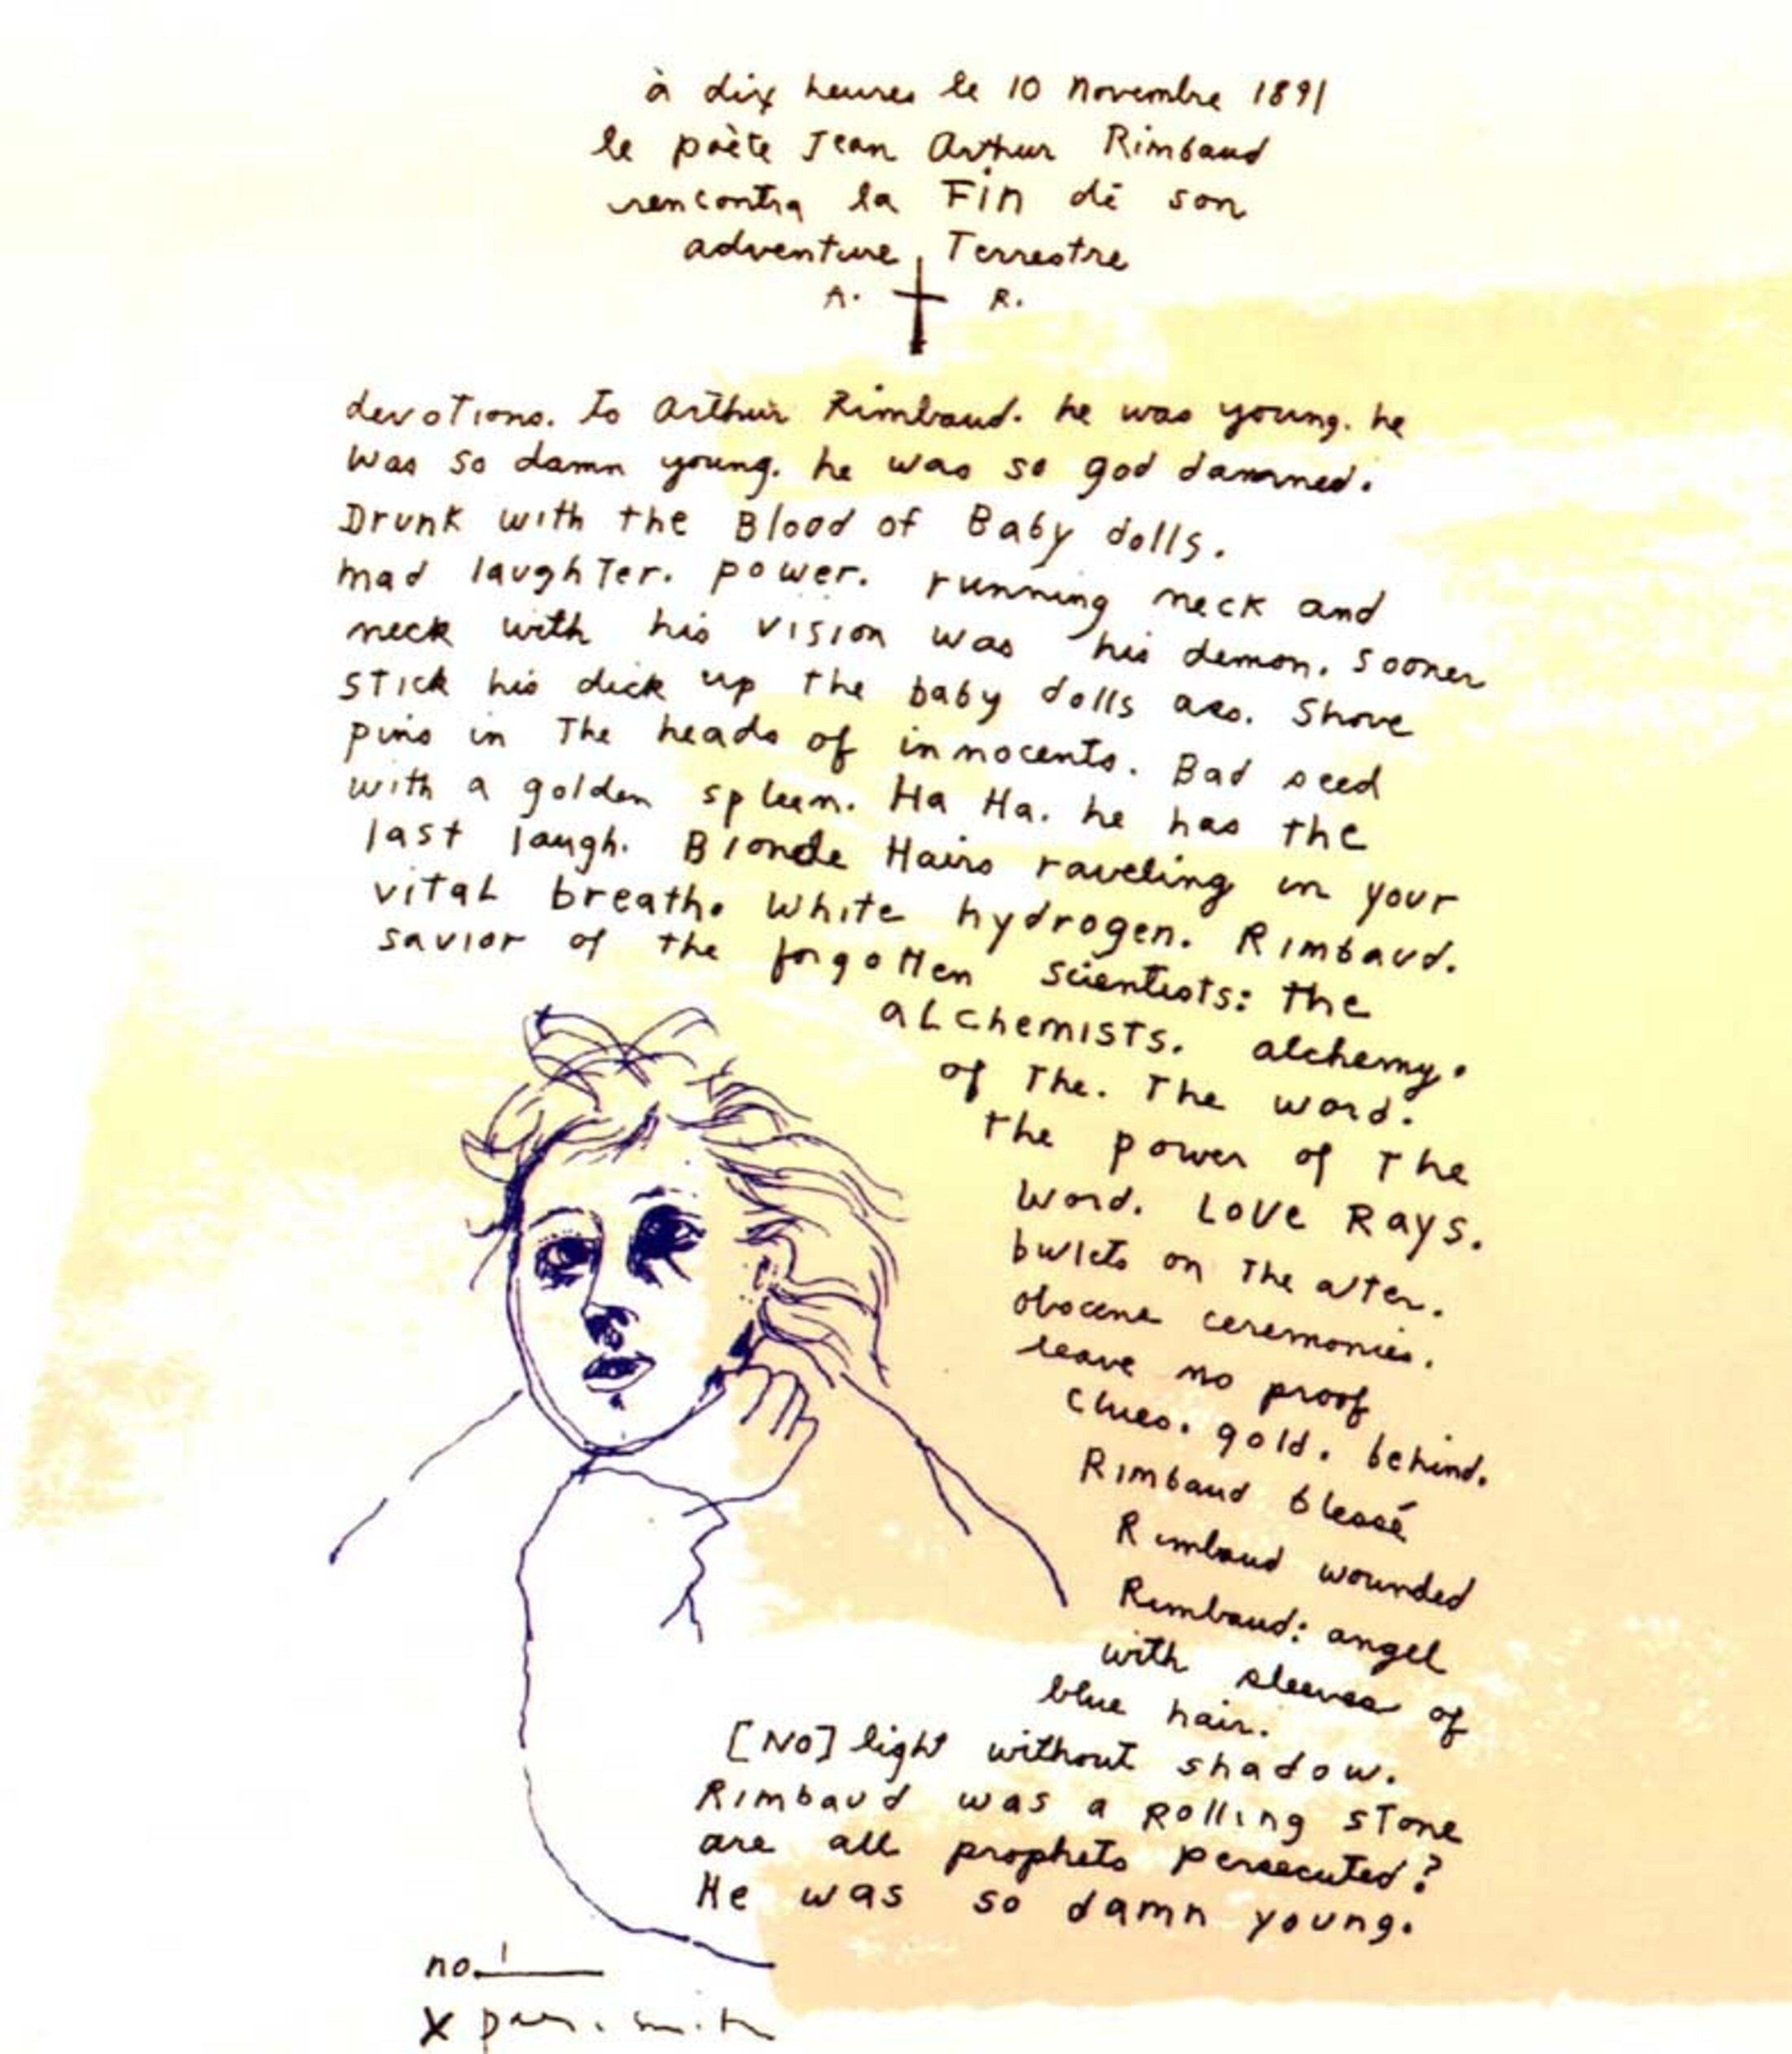 à dix heures le 10 novembre 1891
le poète Jean Arthur Rimbaud
rencontra la Fin de son
adventure Terrestre
A. R.
devotions. to Arthur Rimbaud. he was young. he
was so damn young. he was so god damned.
Drunk with the Blood of Baby dolls.
mad laughter. power. running neck and
neck with his vision was his demon. sooner
stick his dick up the baby dolls ass. Shove
pins in The heads of innocents. Bad seed
with a golden spleen. Ha Ha. he has the
last laugh. Blonde Hairs raveling in your
vital breath. White hydrogen. Rimbaud.
savior of the forgotten scientists: the
aLchemists. alchemy.
of The. The word.
the power of The
word. Love Rays.
bullets on The alter.
obscene ceremonies.
leave no proof
clues. gold. behind.
Rimbaud blessé
Rimbaud wounded
Rimbaud: angel
with sleeves of
blue hair.
[NO] light without shadow.
Rimbaud was a Rolling stone
are all prophets persecuted?
He was so damn young.
no. 1
X smith